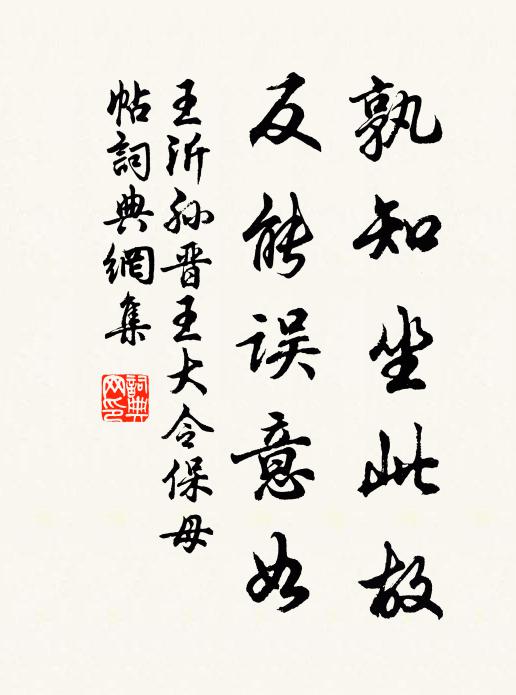 孰知坐此故
反能误意如
王沂孙晋王大令保母
帖詞典網集
詞典
网印